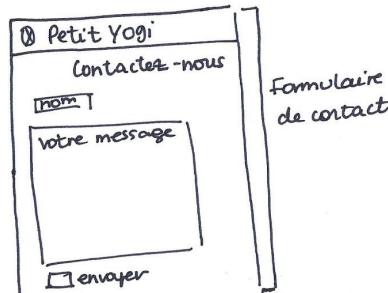 Petit Yogi
Contactez-nous
nom
votre message
envoyer
Formulaire
de contact